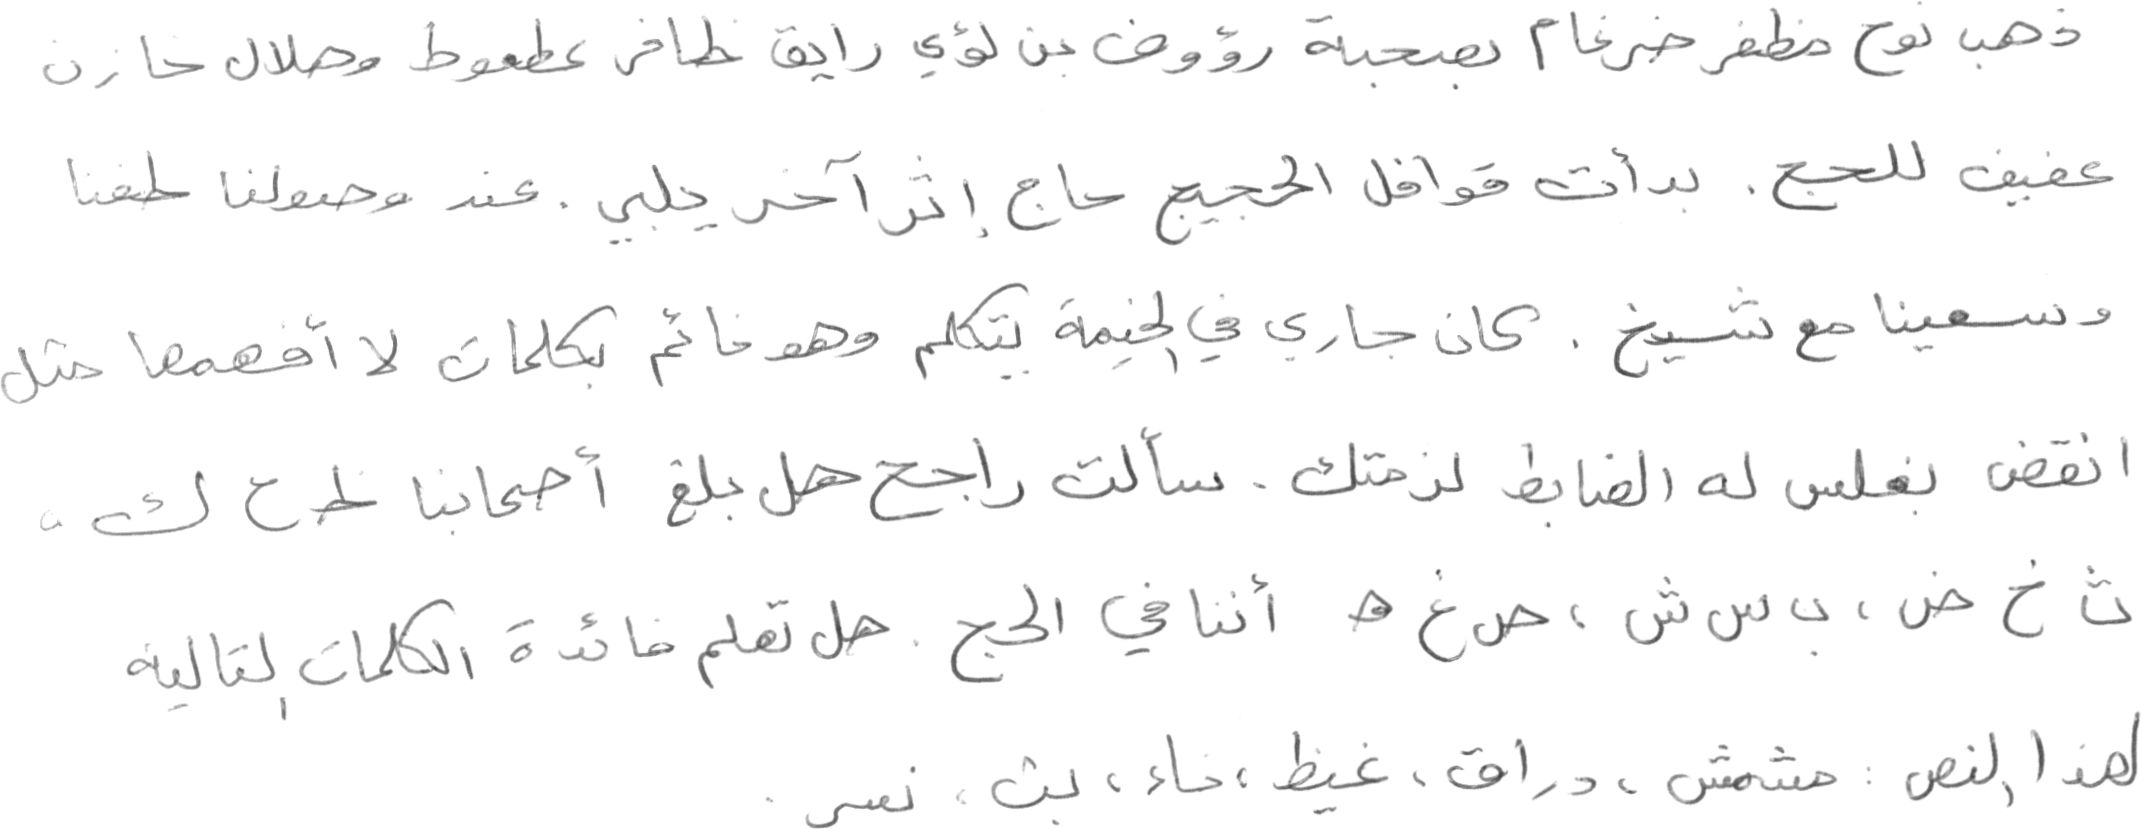 ذهب نوح مظفر ضرغام بصحبة رؤوف بن لؤي رايق ظافر عطعوط وهلال خازن
عفيف للحج. بدأت قوافل الحجيج حاج إثر آخر يلبي. عند وصولنا طفنا
وسعينا مع شيخ. كان جاري في الخيمة يتكلم وهو نائم بكلمات لا أفهمها مثل
انقض بغلس له الضابط لزمتك. سألت راجح هل بلغ أصحابنا ظ ح ك،
ث خ ض، ب س ش، ص غ ه أننا في الحج. هل تعلم فائدة الكلمات التالية
لهذا النص: مشمش، دراق، غيظ، خاء، بث، نسر.